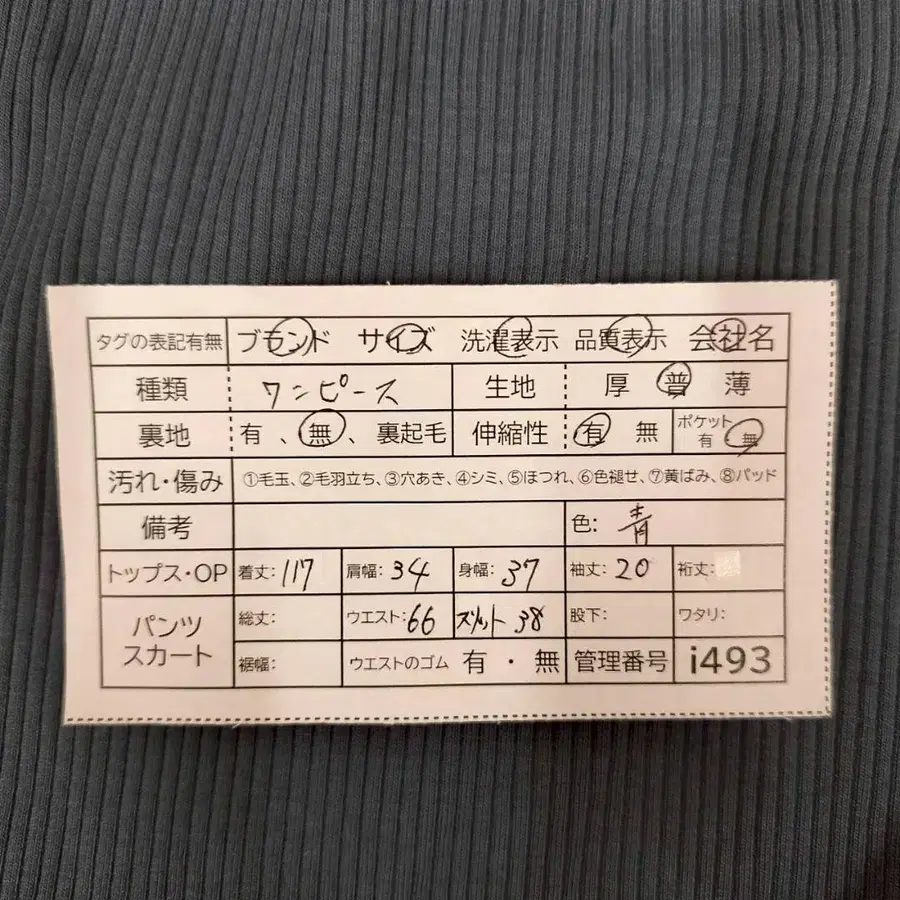 タグの表記有無 ブランド サイズ 洗濯表示 品質表示 会社名
種類 ワンピース 生地 厚 普 薄
裏地 有、無、裏起毛 伸縮性 有 無 ポケット 有 無
汚れ・傷み ①毛玉、②毛羽立ち、③穴あき、④シミ、⑤ほつれ、⑥色褪せ、⑦黄ばみ、⑧パッド
備考 色: 青
トップス・OP 着丈:117 肩幅:34 身幅:37 袖丈:20 裄丈:
パンツ スカート 総丈: ウエスト:66 スリット 38 股下: ワタリ:
裾幅: ウエストのゴム 有・無 管理番号 i493